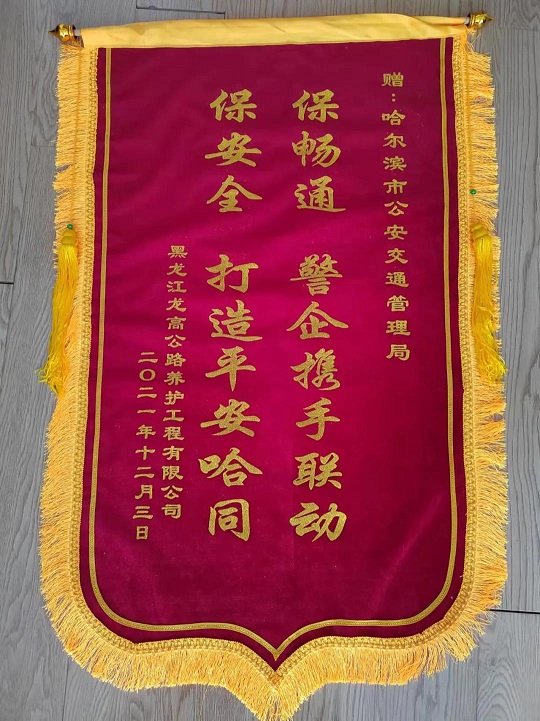 赠：哈尔滨市公安交通管理局
保畅通 警企携手联动
保安全 打造平安哈同
黑龙江龙高公路养护工程有限公司
二〇二一年十二月三日